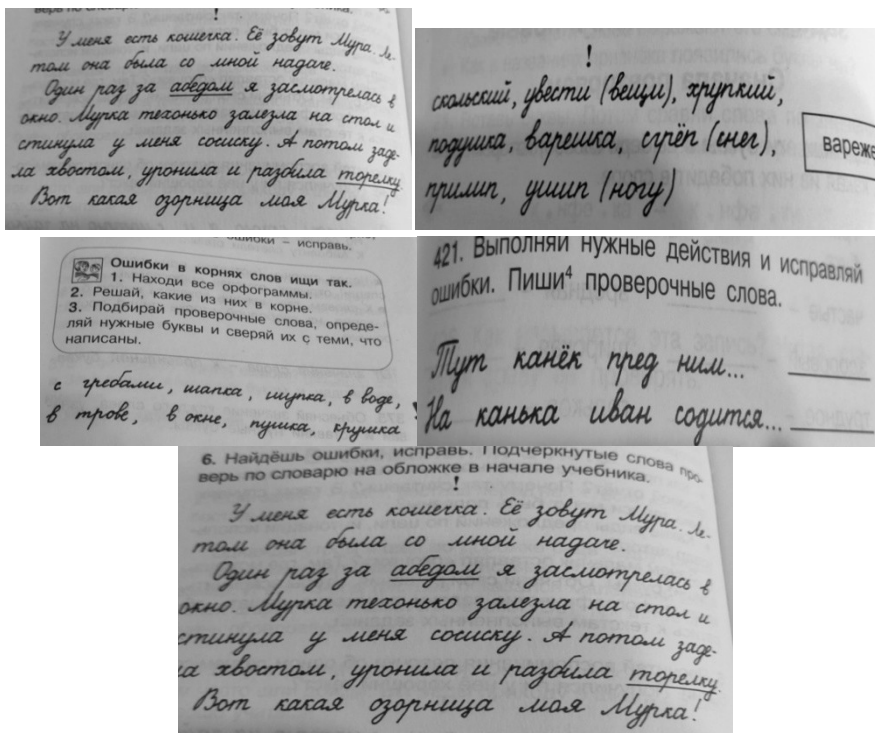 верь по словарю на обложке в начале учебника.
!
У меня есть кошечка. Её зовут Мура. Ле-
том она была со мной надаче.
Один раз за абедом я засмотрелась в
окно. Мурка техонько залезла на стол и
стинула у меня сосиску. А потом заде-
ла хвостом, уронила и разбила торелку.
Вот какая озорница моя Мурка!
!
скольский, увести (вещи), хрупкий,
подушка, варешка, сгрёп (снег),
прилип, ушип (ногу)
вареже
ошибки – исправь.
Ошибки в корнях слов ищи так.
1. Находи все орфограммы.
2. Решай, какие из них в корне.
3. Подбирай проверочные слова, опреде-
ляй нужные буквы и сверяй их с теми, что
написаны.
с гребами, шапка, шупка, в воде,
в трове, в окне, пушка, крушка
421. Выполняй нужные действия и исправляй
ошибки. Пиши⁴ проверочные слова.
Тут канёк пред ним...
На канька иван содится...
6. Найдёшь ошибки, исправь. Подчеркнутые слова про-
верь по словарю на обложке в начале учебника.
!
У меня есть кошечка. Её зовут Мура. Ле-
том она была со мной надаче.
Один раз за абедом я засмотрелась в
окно. Мурка техонько залезла на стол и
стинула у меня сосиску. А потом заде-
ла хвостом, уронила и разбила торелку.
Вот какая озорница моя Мурка!